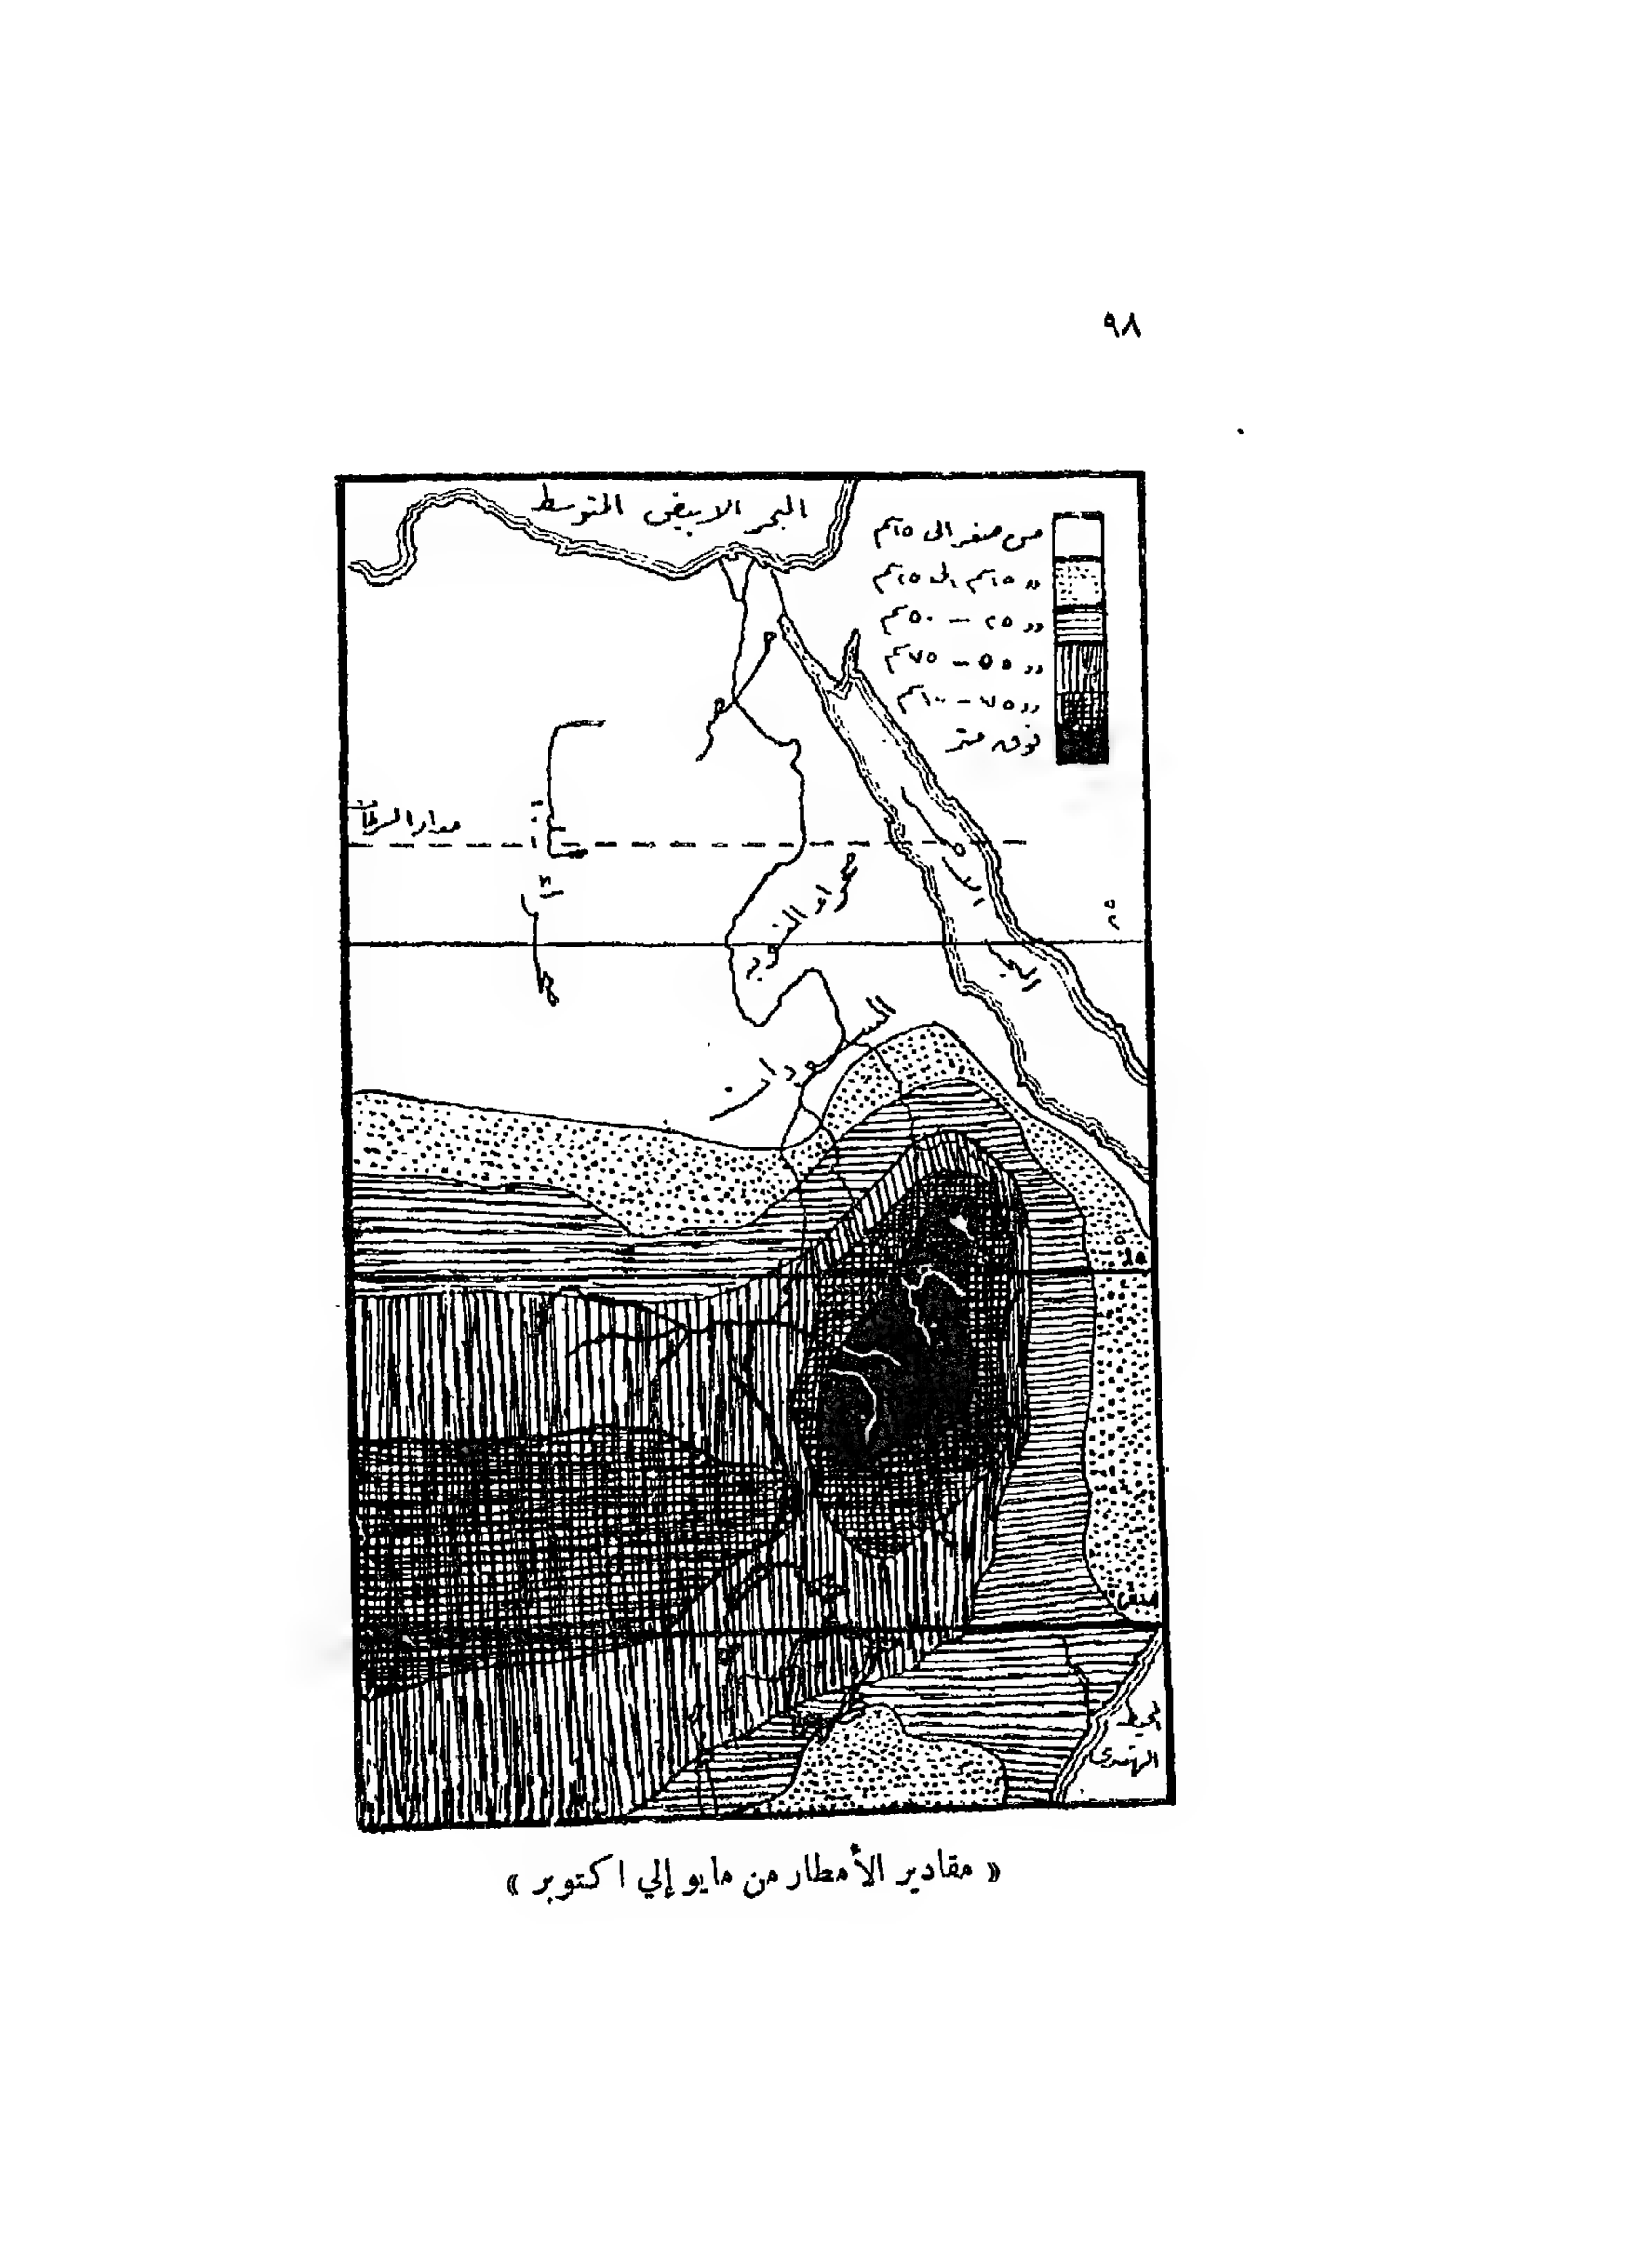 ٩٨
البحر الابيض المتوسط
من صفر الى ١٥سم
« ١٥سم الى ٢٥سم
« ٢٥ - ٥٠سم
« ٥٥ - ٧٥سم
« ٧٥ - ١٠٠سم
فوق متر
مصر
مدار السرطان
بلاد النوبة
البحر الاحمر
السودان
المحيط
الهندى
« مقادير الأمطار من مايو إلي اكتوبر »